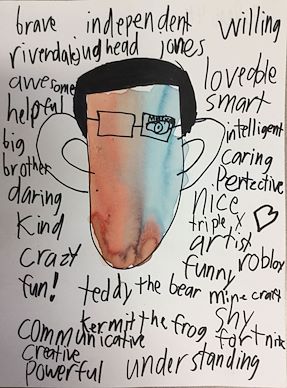 brave independent willing
riverdale jughead jones
awesome loveable
helpful smart
big intelligent
brother caring
daring Perfective
Kind nice
triple x
crazy artist
fun! funny roblox
teddy the bear minecraft
shy
kermit the frog fortnite
communicative
creative
powerful understanding